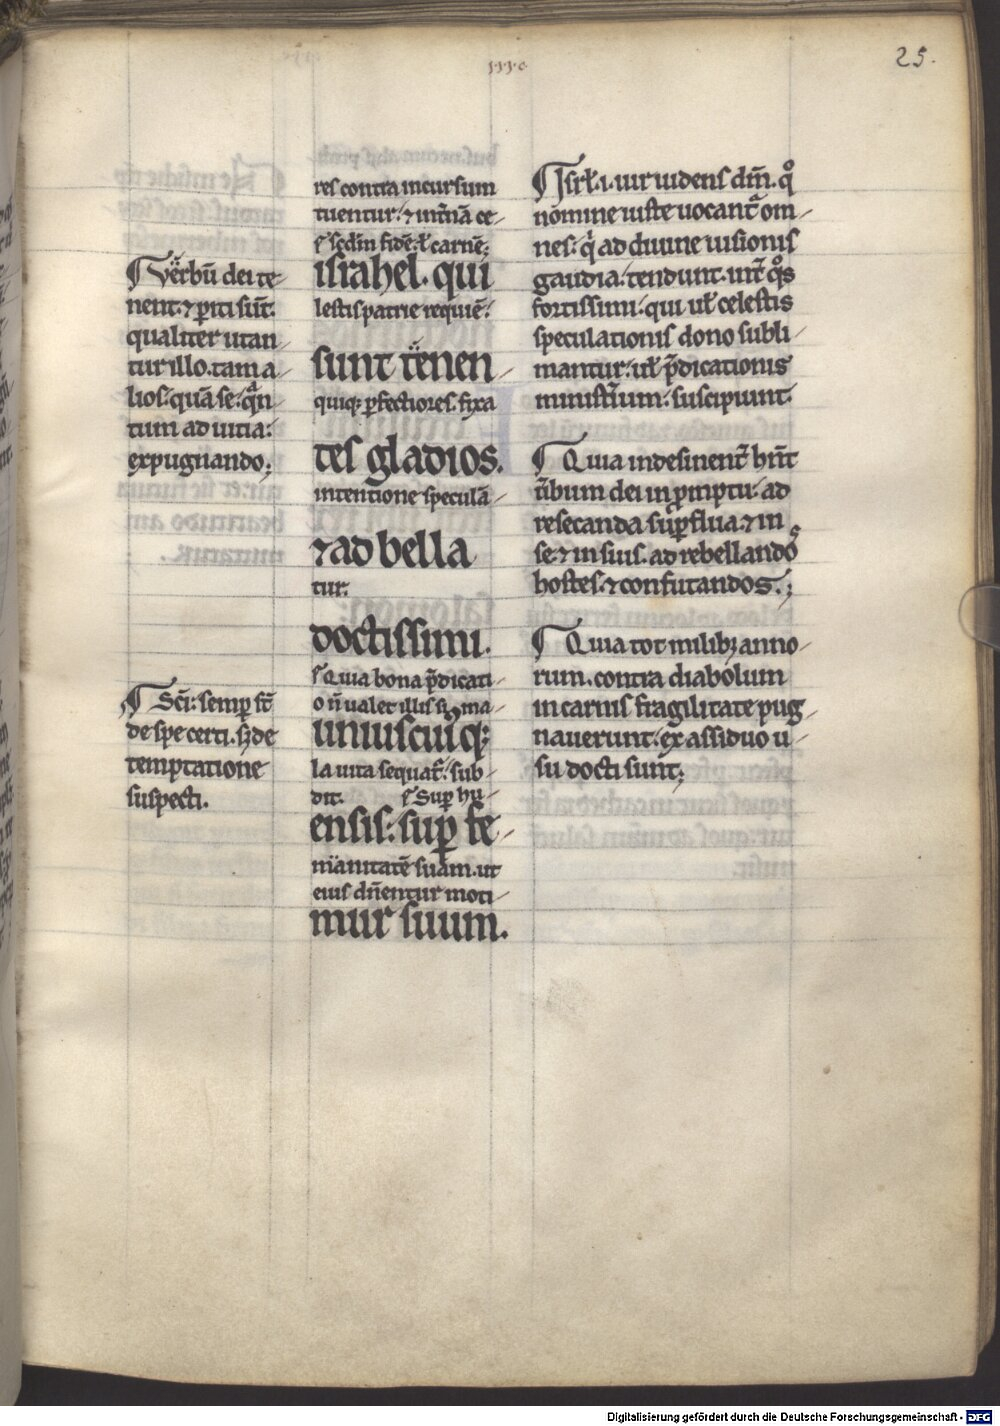 25.
¶ Verbū dei te-
nent. ⁊ ꝑiti sūt.
qualiter utan-
tur illo. tam a-
lios. quā se. qͣn-
tum ad uitia.
expugnando;
¶ Sci: semp sт
de spe certi. sꝫ de
temptatione
suspecti.
res contra incursum
tuentur. ⁊ int̄nā ce-
sedm fidē. ł carnē;
israhel. qui
lestis patrie requiē.
sunt tenen-
quiqꝫ ꝑfectiores. fixa
tes gladios.
intentione speculā-
⁊ ad bella
tur.
doctissimi.
Quia bona p̄dicati-
o n̄ ualet illis si ma-
uniuscuiqꝫ
la uita sequat̄. sub-
dit. Suꝑ hu-
ensis: suꝑ fe-
manitatē suam. ut
eius dn̄entur moti-
mur suum.
¶ Isrł. i. uir uidens dm̄. qͦ
nomine iuste uocant̄ om-
nes. qͥ ad diuine uisionis
gaudia. tendunt.
fortissimi. qui uł celestis
speculationis dono subli-
mantur. uł p̄dicationis
ministium. suscipiunt.
¶ Quia indesinent̄ hn̄t
ūbum dei in ꝓmptu. ad
resecanda suꝑflua. ⁊ in
se. ⁊ in suis. ad rebellandos
hostes. ⁊ confutandos.;
¶ Quia tot milibꝫ anno-
rum. contra diabolum
in carnis fragilitate pug-
nauerunt. ex assiduo u-
su docti sunt;
Digitalisierung gefördert durch die Deutsche Forschungsgemeinschaft - DFG